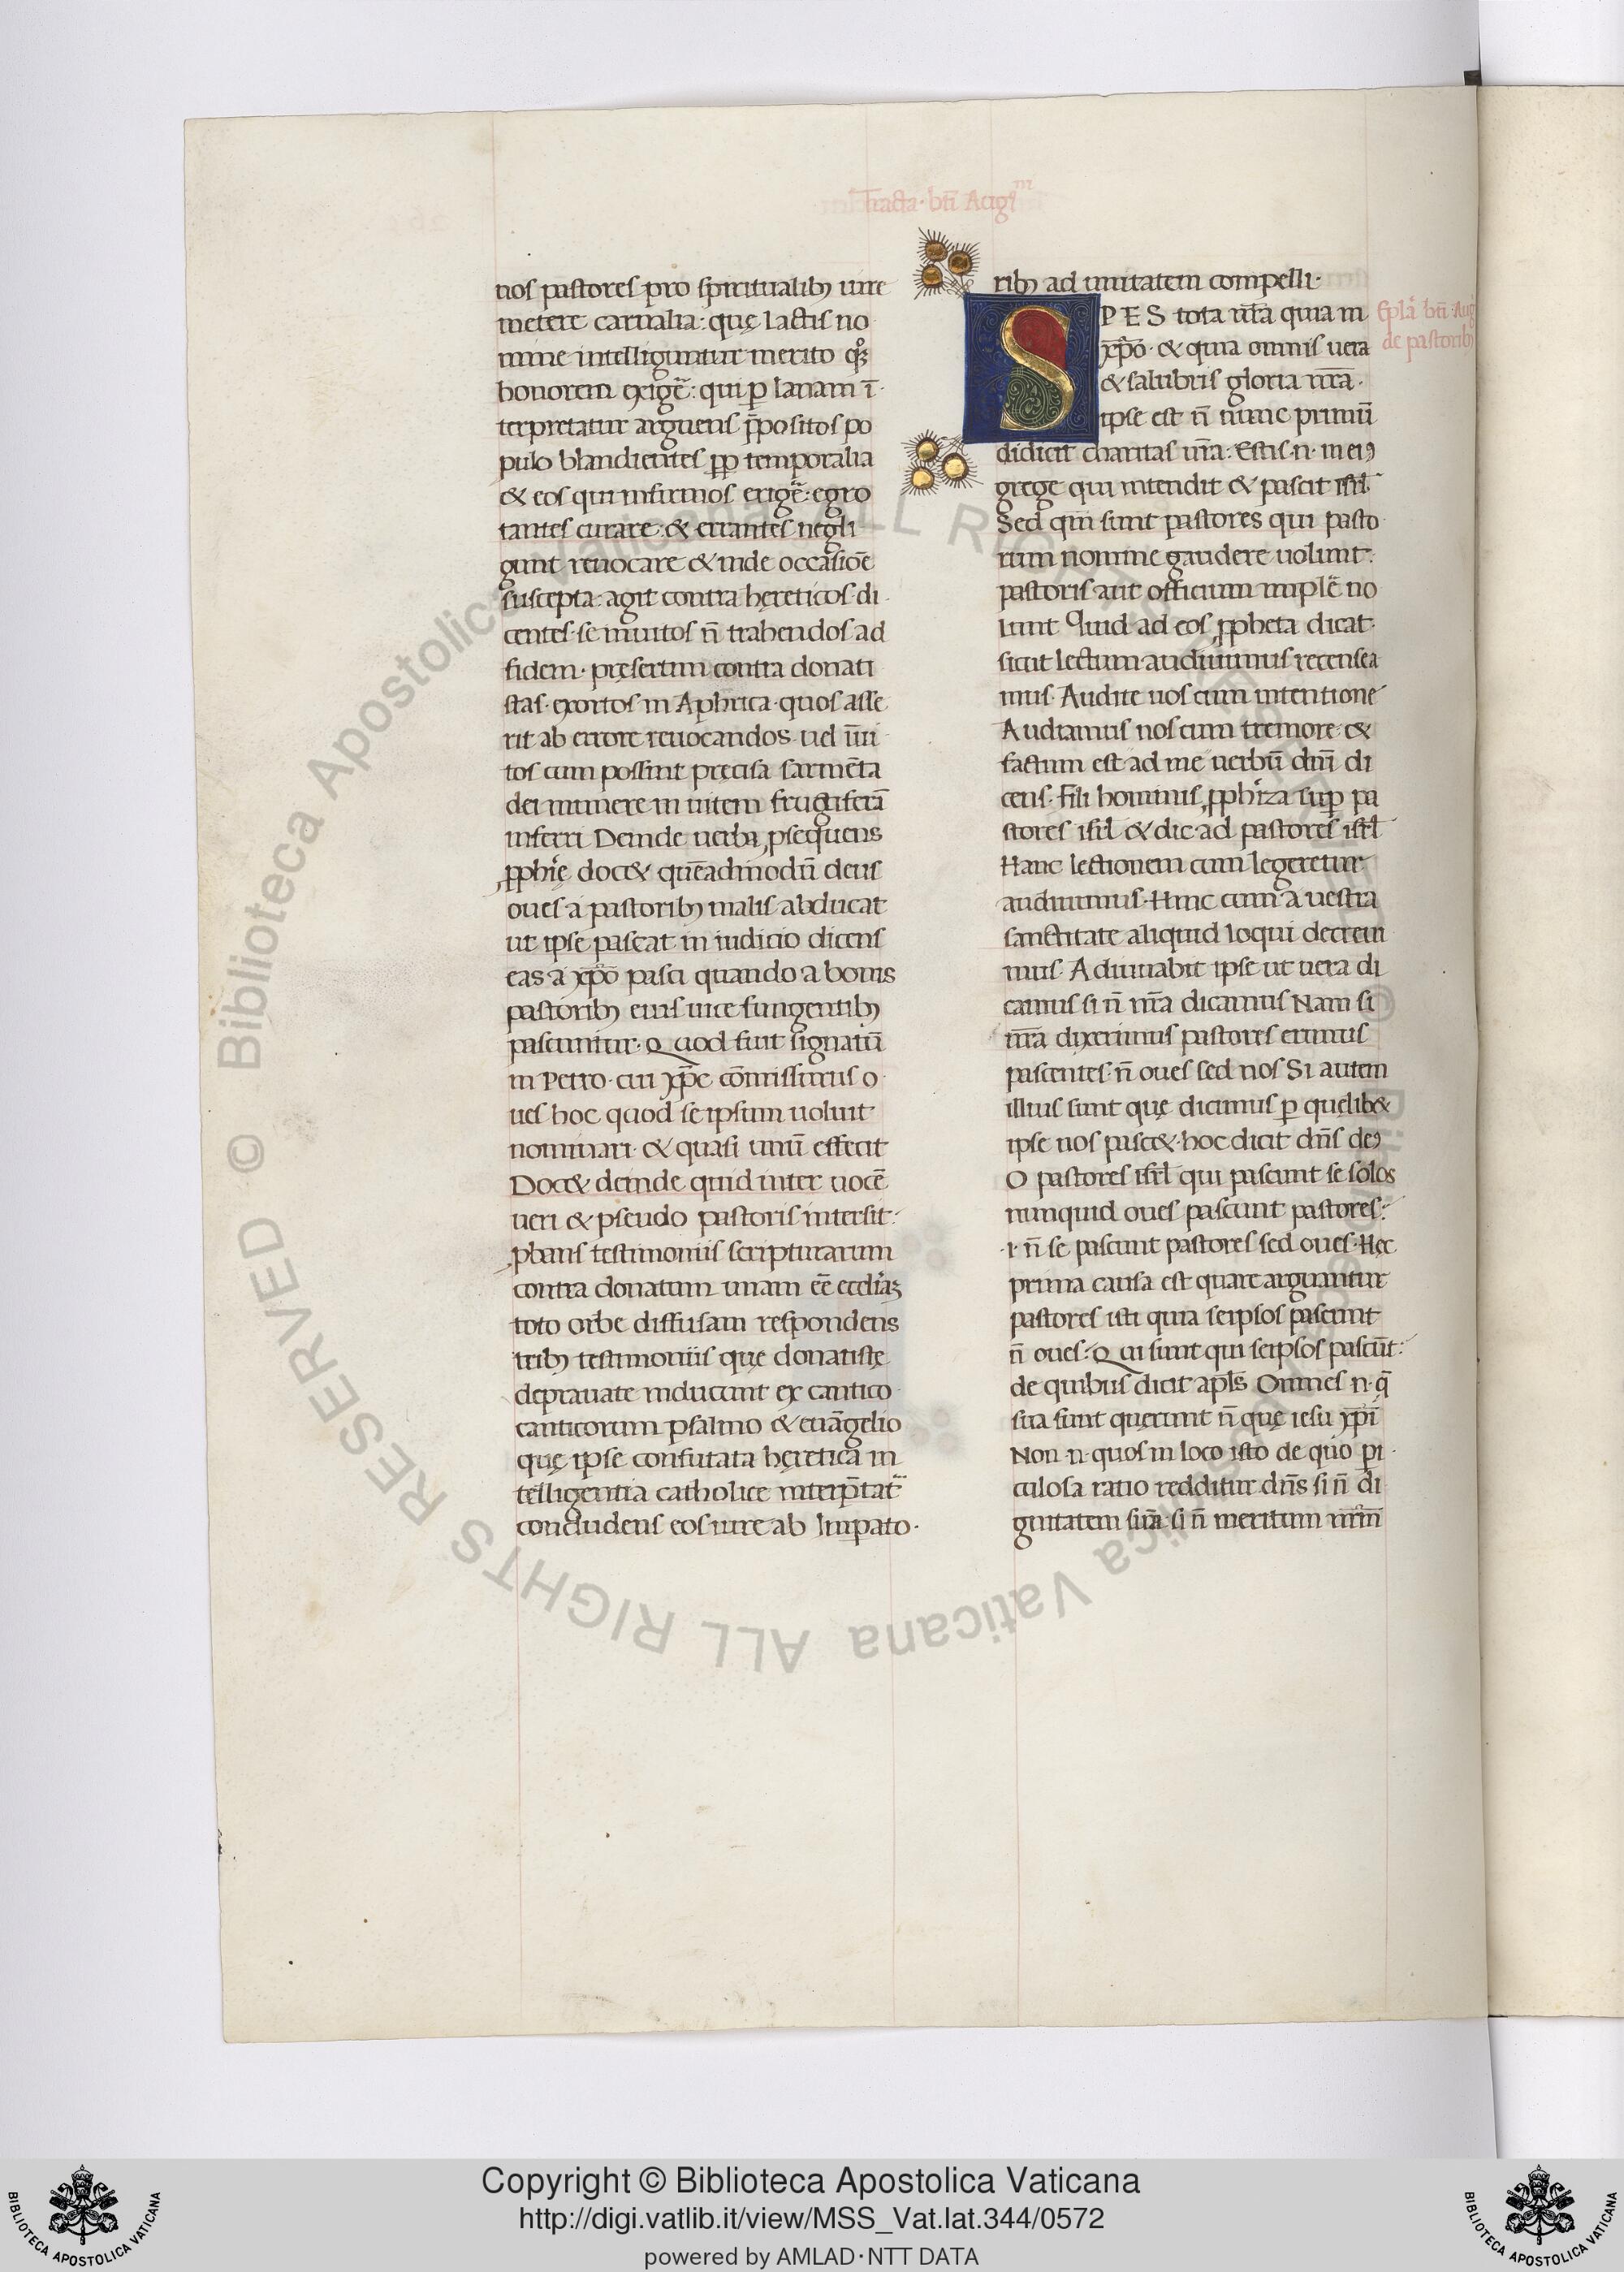 Tracta · bti Augᵐ
nos pastores pro spiritualibꝫ iure
metere carnalia: quę lactis no
mine intelliguntur merito qꝫ
honorem exigē: qui ꝑ lanam ī
terpretatur arguens p̄positos po
pulo blandientes ꝓp temporalia
& eos qui infirmos erigē: egro
tantes curare: & errantes negli
gunt reuocare & inde occasionē
suscepta: agit contra hęreticos di
centes se inuitos n̄ trahendos ad
fidem · pręsertim contra donati
stas · exortos in Aphrica · quos asse
rit ab errore reuocandos uel ūni
tos cum possint pręcisa sarmēta
dei munere in uitem fructiferā
inserri Deinde uerba ꝓsequens
ꝓphię doc& quēadmodū deus
oues a pastoribꝫ malis abducat
ut ipse pascat in iudicio dicens
eas a xp̄o pasci quando a bonis
pastoribꝫ eius uice fungentibꝫ
pascuntur · Quod fuit signatū
in Petro · cui xp̄c cōmissurus o
ues hoc quod se ipsum uoluit
nominari · & quasi unū effecit
Doc& deinde quid inter uocē
ueri & pseudo pastoris intersit:
ꝓbans testimoniis scripturarum
contra donatum unam eē ecclīaꝫ
toto orbe diffusam respondens
tribꝫ testimoniis quę donatistę
deprauate inducunt ex cantico
canticorum psalmo & euāgelio
quę ipse confutata hęretica in
telligentia catholice interp̄tat̄
concludens eos iure ab Imꝑato·
ribꝫ ad unitatem compelli·
SPES tota nr̄a quia in
xp̄o · & quia omnis uera
& salubris gloria nr̄a ·
ipse est n̄ nunc primū
didicit charitas ur̄a: Estis · n · in eiꝰ
grege qui intendit & pascit isr̄l
Sed qm̄ sunt pastores qui pasto
rum nomine gaudere uolunt:
pastoris aut officium implē no
lunt Quid ad eos ꝓpheta dicat
sicut lectum audiuimus recensea
mus · Audite uos cum intentione
Audiamus nos cum tremore · &
factum est ad me uerbū dnī di
cens · Fili hominis ꝓphīza suꝑ pa
stores isr̄l & dic · ad pastores isr̄l
Hanc lectionem cum legeretur
audiuimus · Hinc cum a uestra
sanctitate aliquid loqui decreui
mus · Adiuuabit ipse ut uera di
camus si n̄ nr̄a dicamus Nam si
nr̄a dixerimus pastores erimus
pascentes · n̄ oues sed nos Si autem
illius sunt quę dicimus ꝑ quęlib&
ipse uos pasc& · hoc dicit dn̄s deꝰ
O pastores isr̄l qui pascunt se solos
nunquid oues pascunt pastores:
·i· n̄ se pascunt pastores sed oues · Hęc
prima causa est quare arguantur
pastores isti quia seipsos pascunt
n̄ oues · Qui sunt qui seipsos pascūt:
de quibus dicit apl̄s Omnes · n · q̄
sua sunt querunt n̄ quę iesu xp̄i
Non · n · quos in loco isto de quo ꝑi·
culosa ratio redditur dn̄s si n̄ di
gnitatem suā si n̄ meritum nr̄m
Epl̄a bt̄i Aug
de pastoribꝫ
Copyright © Biblioteca Apostolica Vaticana
http://digi.vatlib.it/view/MSS_Vat.lat.344/0572
powered by AMLAD·NTT DATA
BIBLIOTECA APOSTOLICA VATICANA
BIBLIOTECA APOSTOLICA VATICANA
© Biblioteca Apostolica Vaticana ALL RIGHTS RESERVED © Biblioteca Apostolica Vaticana ALL RIGHTS RESERVED